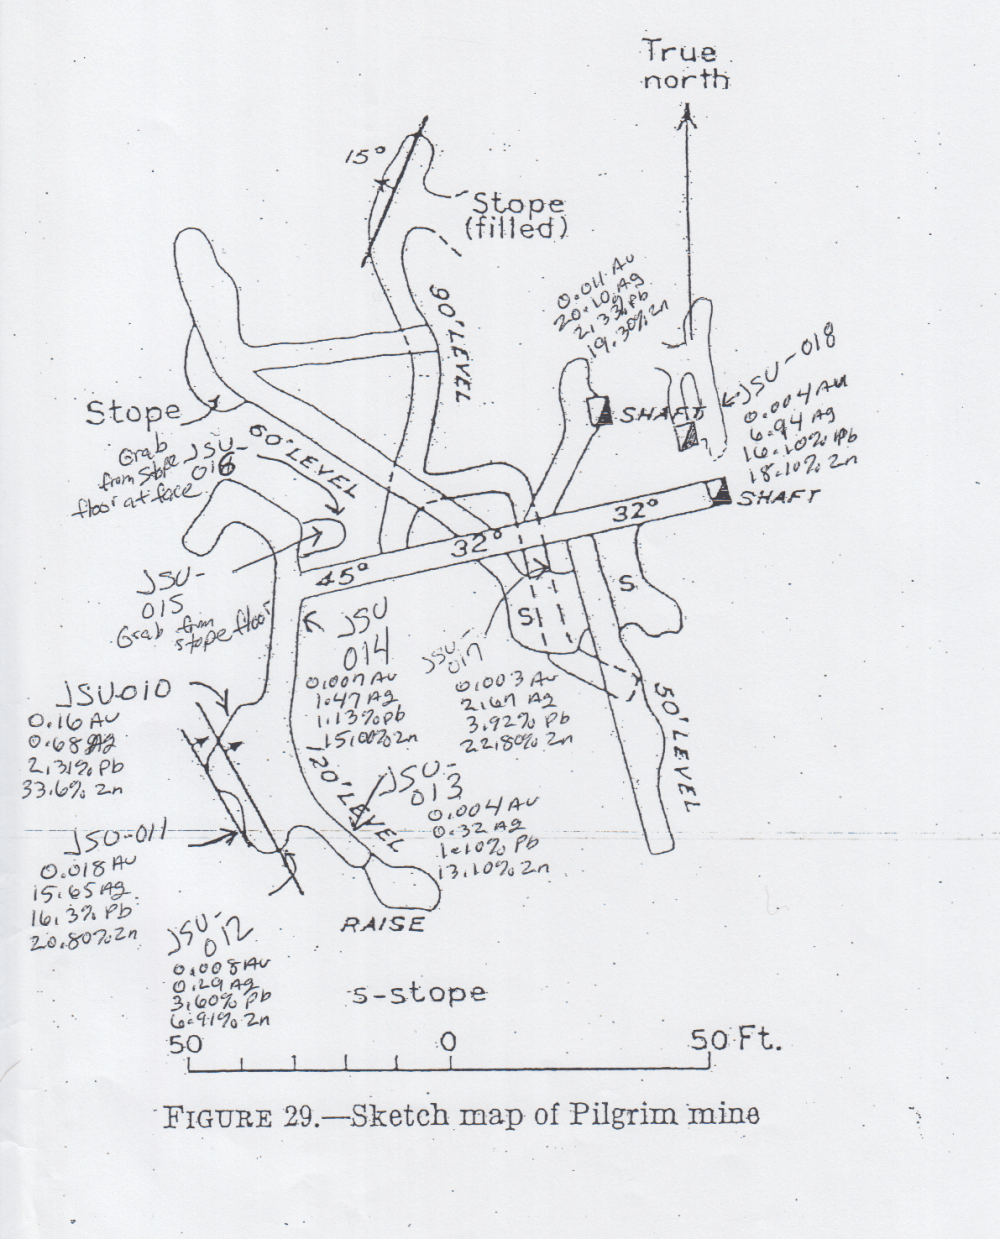 True
north
15°
Stope
(filled)
90' LEVEL
0.011 Au
20.10 Ag
2.33% Pb
19.30% Zn
JSU-018
0.004 Au
6.94 Ag
16.10% Pb
18.10% Zn
SHAFT
SHAFT
Stope
60' LEVEL
Grab
from Stope
floor at face
JSU-
016
32°
32°
45°
S
S
JSU-
015
Grab from
stope floor
JSU
014
0.007 Au
1.47 Ag
1.13% Pb
15.00% Zn
JSU-
017
0.003 Au
2.67 Ag
3.92% Pb
22.80% Zn
50' LEVEL
JSU-010
0.16 Au
0.68 Ag
2.31% Pb
33.6% Zn
120' LEVEL
JSU-
013
0.004 Au
0.32 Ag
1.10% Pb
13.10% Zn
JSU-011
0.018 Au
15.65 Ag
16.3% Pb
20.80% Zn
JSU-
012
0.008 Au
0.29 Ag
3.60% Pb
6.91% Zn
RAISE
s-stope
50 0 50 Ft.
FIGURE 29.—Sketch map of Pilgrim mine